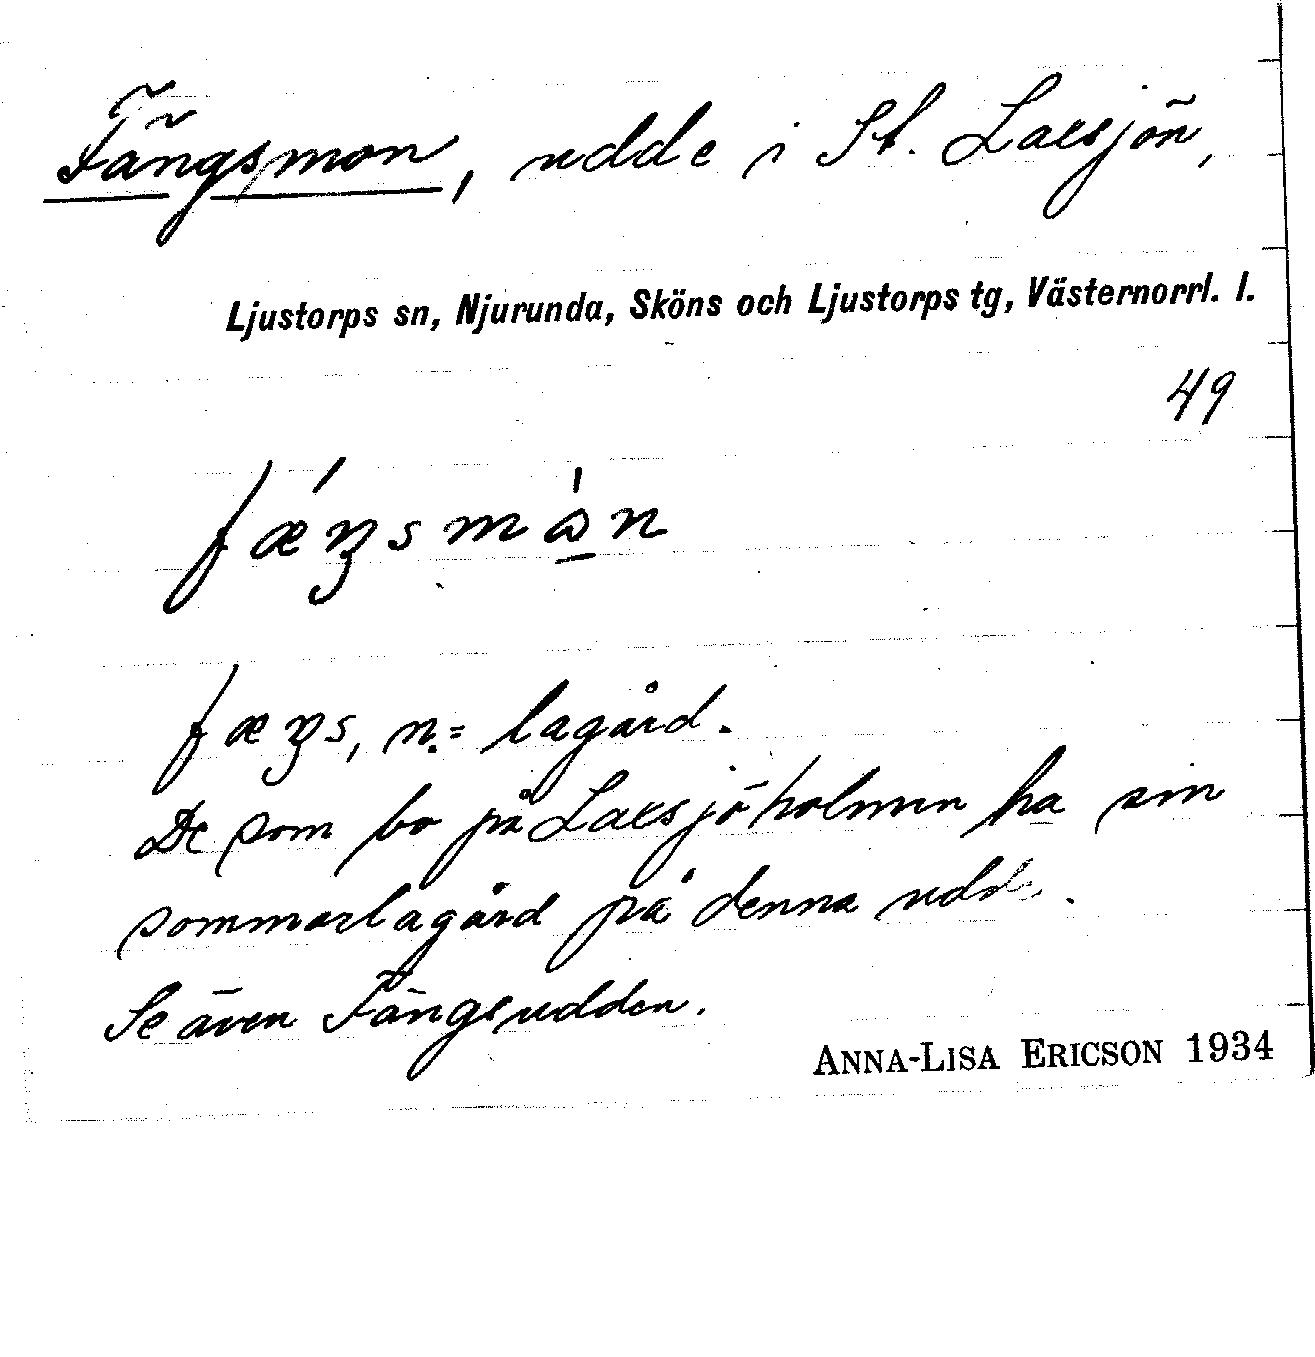 Fängsmon, udde i St. Laxsjön,
Ljustorps sn, Njurunda, Sköns och Ljustorps tg, Västernorrl. l.
49
fæŋsmòn
fæŋs, n. = lagård.
De som bo på Laxsjöholmen ha sin
sommarlagård på denna udde.
Se även Fängsudden.
ANNA-LISA ERICSON 1934